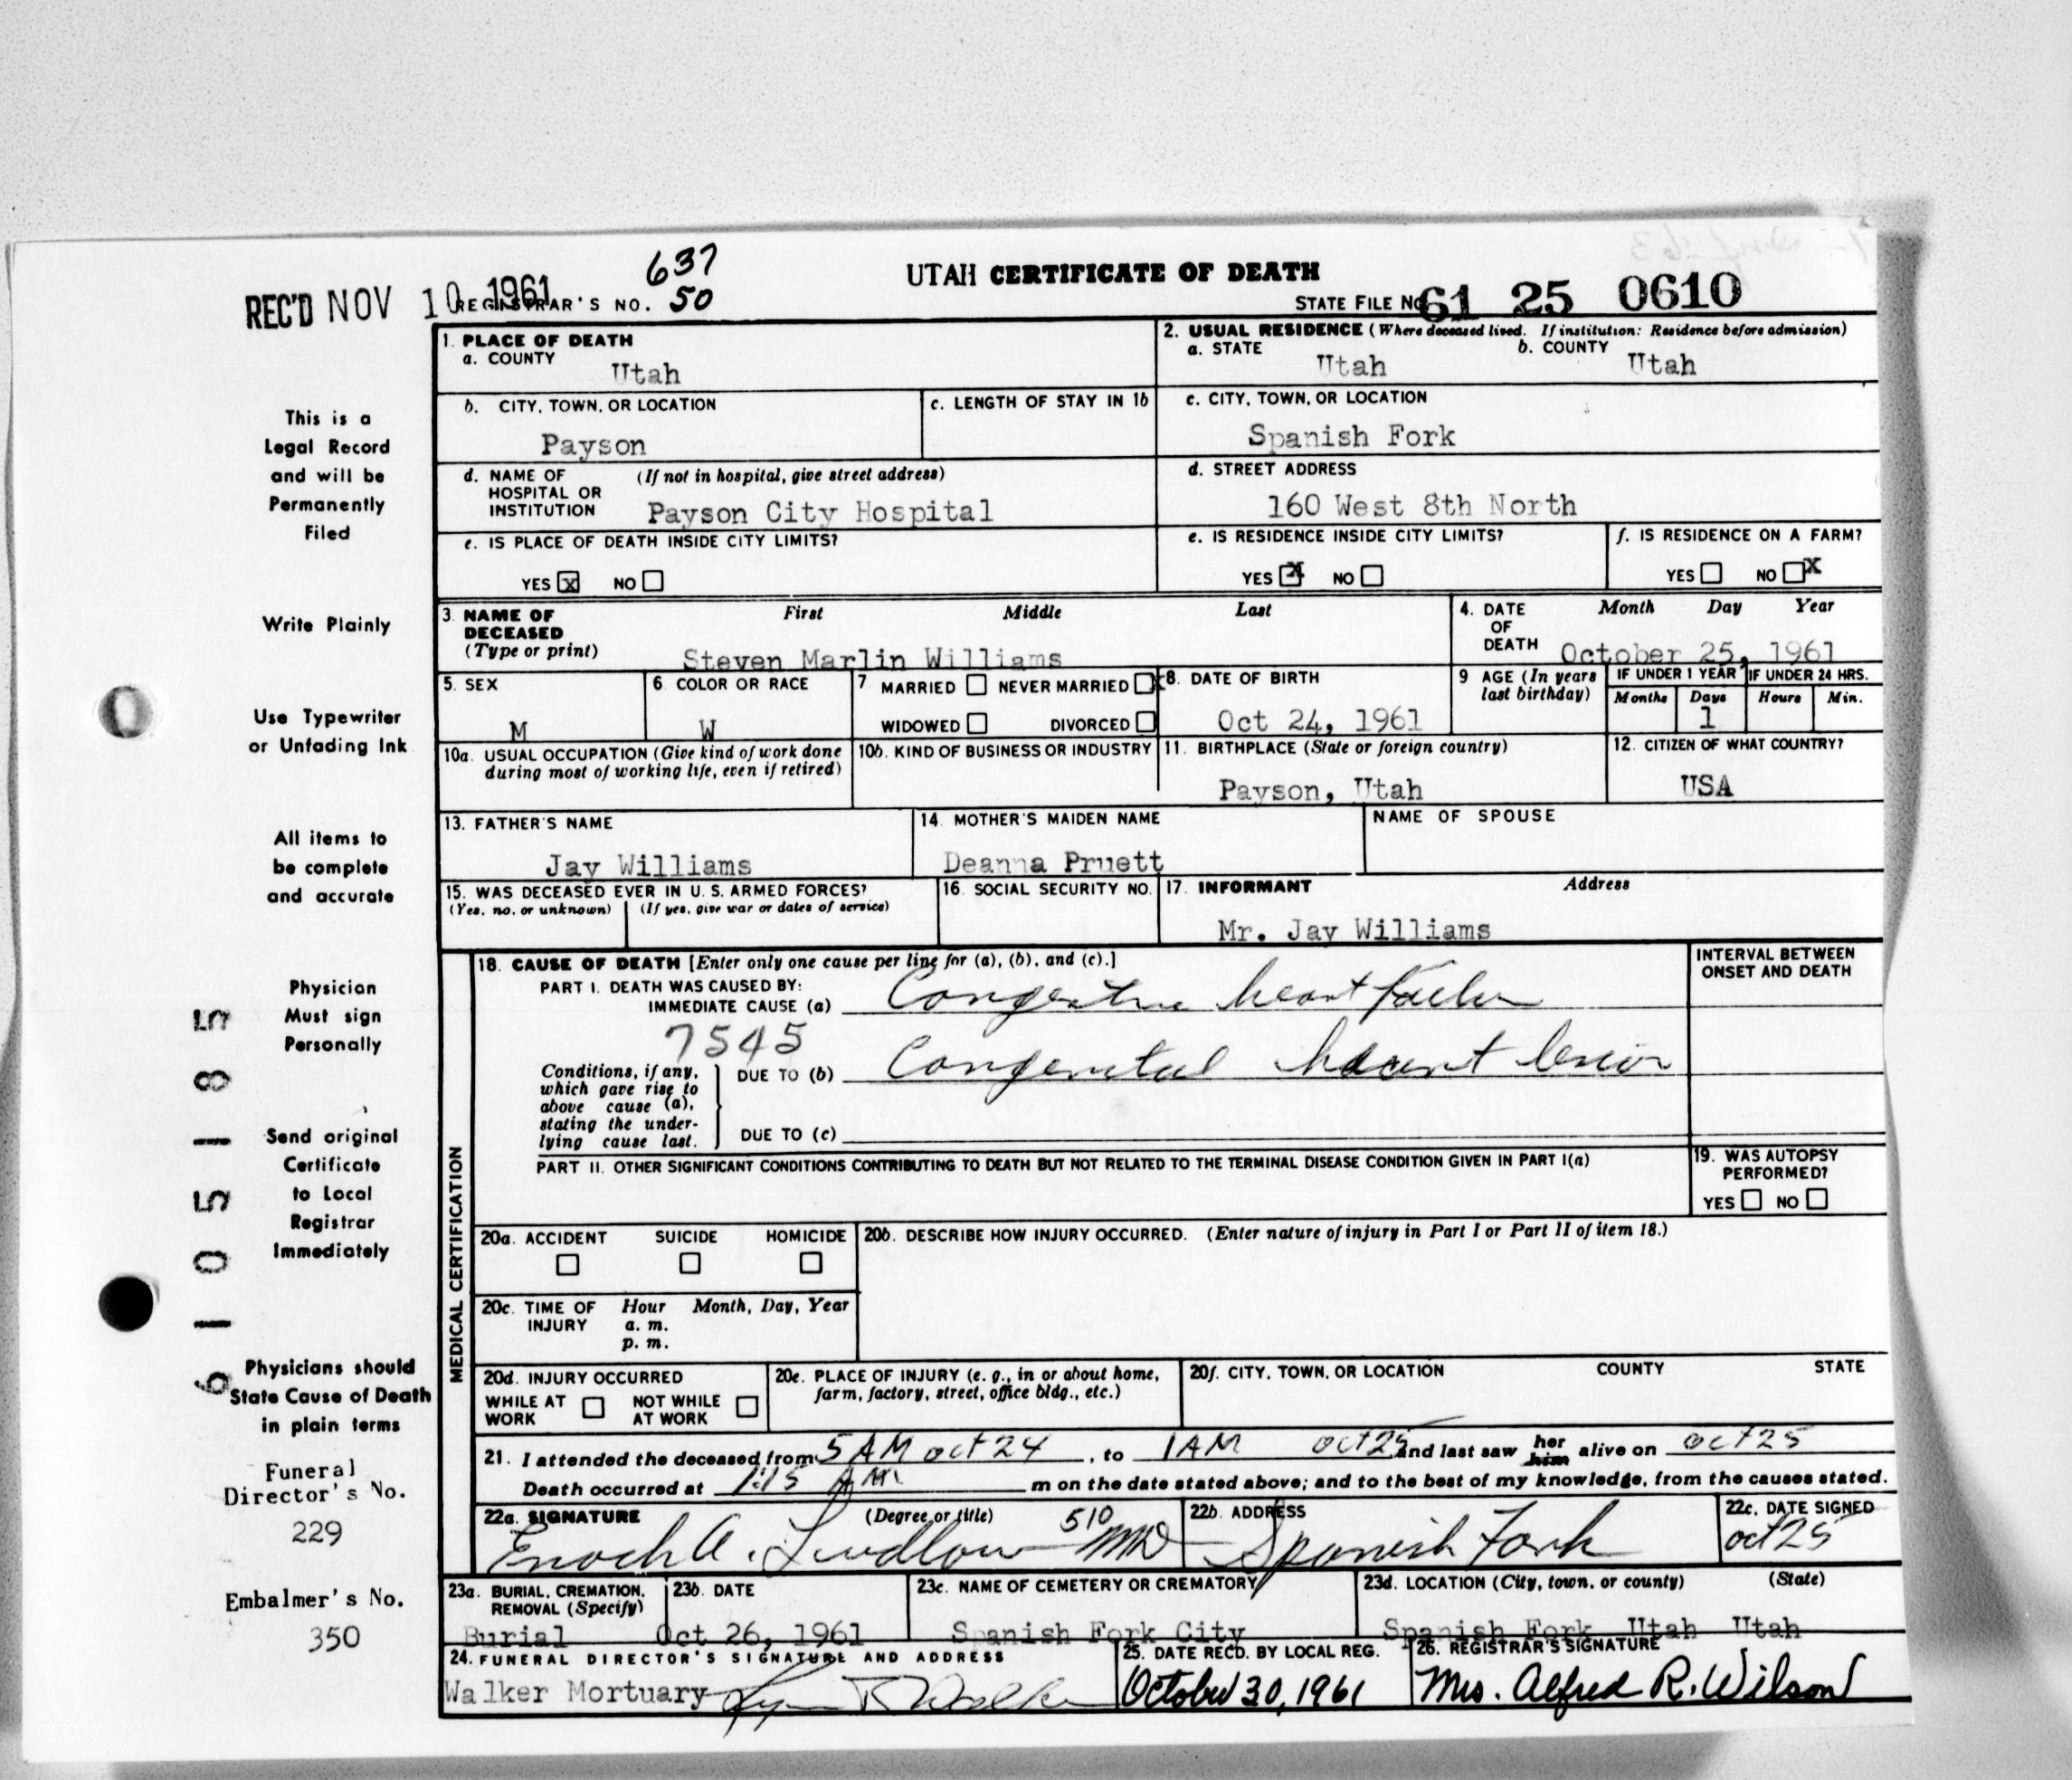 637
UTAH CERTIFICATE OF DEATH
REC'D NOV 10 1961 REGISTRAR'S NO. 50 STATE FILE NO. 61 25 0610
1. PLACE OF DEATH
a. COUNTY
Utah
2. USUAL RESIDENCE (Where deceased lived. If institution: Residence before admission)
a. STATE b. COUNTY
Utah Utah
b. CITY, TOWN, OR LOCATION
Payson
c. LENGTH OF STAY IN 1b
c. CITY, TOWN, OR LOCATION
Spanish Fork
d. NAME OF (If not in hospital, give street address)
HOSPITAL OR
INSTITUTION Payson City Hospital
d. STREET ADDRESS
160 West 8th North
e. IS PLACE OF DEATH INSIDE CITY LIMITS?
YES x NO
e. IS RESIDENCE INSIDE CITY LIMITS?
YES X NO
f. IS RESIDENCE ON A FARM?
YES NO X
3. NAME OF First Middle Last
DECEASED
(Type or print) Steven Marlin Williams
4. DATE Month Day Year
OF
DEATH October 25, 1961
5. SEX
M
6. COLOR OR RACE
W
7. MARRIED NEVER MARRIED X
WIDOWED DIVORCED
8. DATE OF BIRTH
Oct 24, 1961
9 AGE (In years
last birthday)
IF UNDER 1 YEAR IF UNDER 24 HRS.
Months Days Hours Min.
1
10a. USUAL OCCUPATION (Give kind of work done
during most of working life, even if retired)
10b. KIND OF BUSINESS OR INDUSTRY
11. BIRTHPLACE (State or foreign country)
Payson, Utah
12. CITIZEN OF WHAT COUNTRY?
USA
13. FATHER'S NAME
Jay Williams
14. MOTHER'S MAIDEN NAME
Deanna Pruett
NAME OF SPOUSE
15. WAS DECEASED EVER IN U. S. ARMED FORCES?
(Yes, no, or unknown) (If yes, give war or dates of service)
16. SOCIAL SECURITY NO.
17. INFORMANT Address
Mr. Jay Williams
MEDICAL CERTIFICATION
18. CAUSE OF DEATH [Enter only one cause per line for (a), (b), and (c).]
PART I. DEATH WAS CAUSED BY:
IMMEDIATE CAUSE (a) Congestive heart failure
7545
Conditions, if any,
which gave rise to
above cause (a),
stating the under-
lying cause last.
DUE TO (b) Congenital heart lesion
DUE TO (c)
INTERVAL BETWEEN
ONSET AND DEATH
PART II. OTHER SIGNIFICANT CONDITIONS CONTRIBUTING TO DEATH BUT NOT RELATED TO THE TERMINAL DISEASE CONDITION GIVEN IN PART I(a)
19. WAS AUTOPSY
PERFORMED?
YES NO
20a. ACCIDENT SUICIDE HOMICIDE
20b. DESCRIBE HOW INJURY OCCURRED. (Enter nature of injury in Part I or Part II of item 18.)
20c. TIME OF Hour Month, Day, Year
INJURY a. m.
p. m.
20d. INJURY OCCURRED
WHILE AT NOT WHILE
WORK AT WORK
20e. PLACE OF INJURY (e. g., in or about home,
farm, factory, street, office bldg., etc.)
20f. CITY, TOWN, OR LOCATION COUNTY STATE
21. I attended the deceased from 5 AM oct 24, to 1AM oct 25 and last saw her him alive on oct 25
Death occurred at 1:15 AM m on the date stated above; and to the best of my knowledge, from the causes stated.
22a. SIGNATURE (Degree or title) 510
Enoch A. Ludlow MD
22b. ADDRESS
Spanish Fork
22c. DATE SIGNED
oct 25
23a. BURIAL, CREMATION,
REMOVAL (Specify)
Burial
23b. DATE
Oct 26, 1961
23c. NAME OF CEMETERY OR CREMATORY
Spanish Fork City
23d. LOCATION (City, town, or county) (State)
Spanish Fork Utah Utah
24. FUNERAL DIRECTOR'S SIGNATURE AND ADDRESS
Walker Mortuary
25. DATE RECD. BY LOCAL REG.
October 30, 1961
26. REGISTRAR'S SIGNATURE
Mrs. Alfred R. Wilson
This is a
Legal Record
and will be
Permanently
Filed
Write Plainly
Use Typewriter
or Unfading Ink
All items to
be complete
and accurate
Physician
Must sign
Personally
Send original
Certificate
to Local
Registrar
Immediately
Physicians should
State Cause of Death
in plain terms
Funeral
Director's No.
229
Embalmer's No.
350
6105185